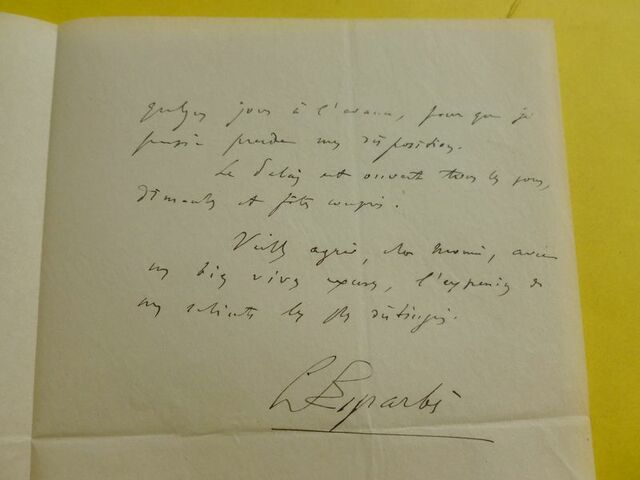 quelques jours à l'avance, pour que je
puisse prendre mes dispositions.
Le est ouvert tous les jours,
dimanches et fêtes compris.
Veuillez agréer, cher Monsieur, avec
mes bien vives excuses, l'expression de
mes sentiments les plus distingués.